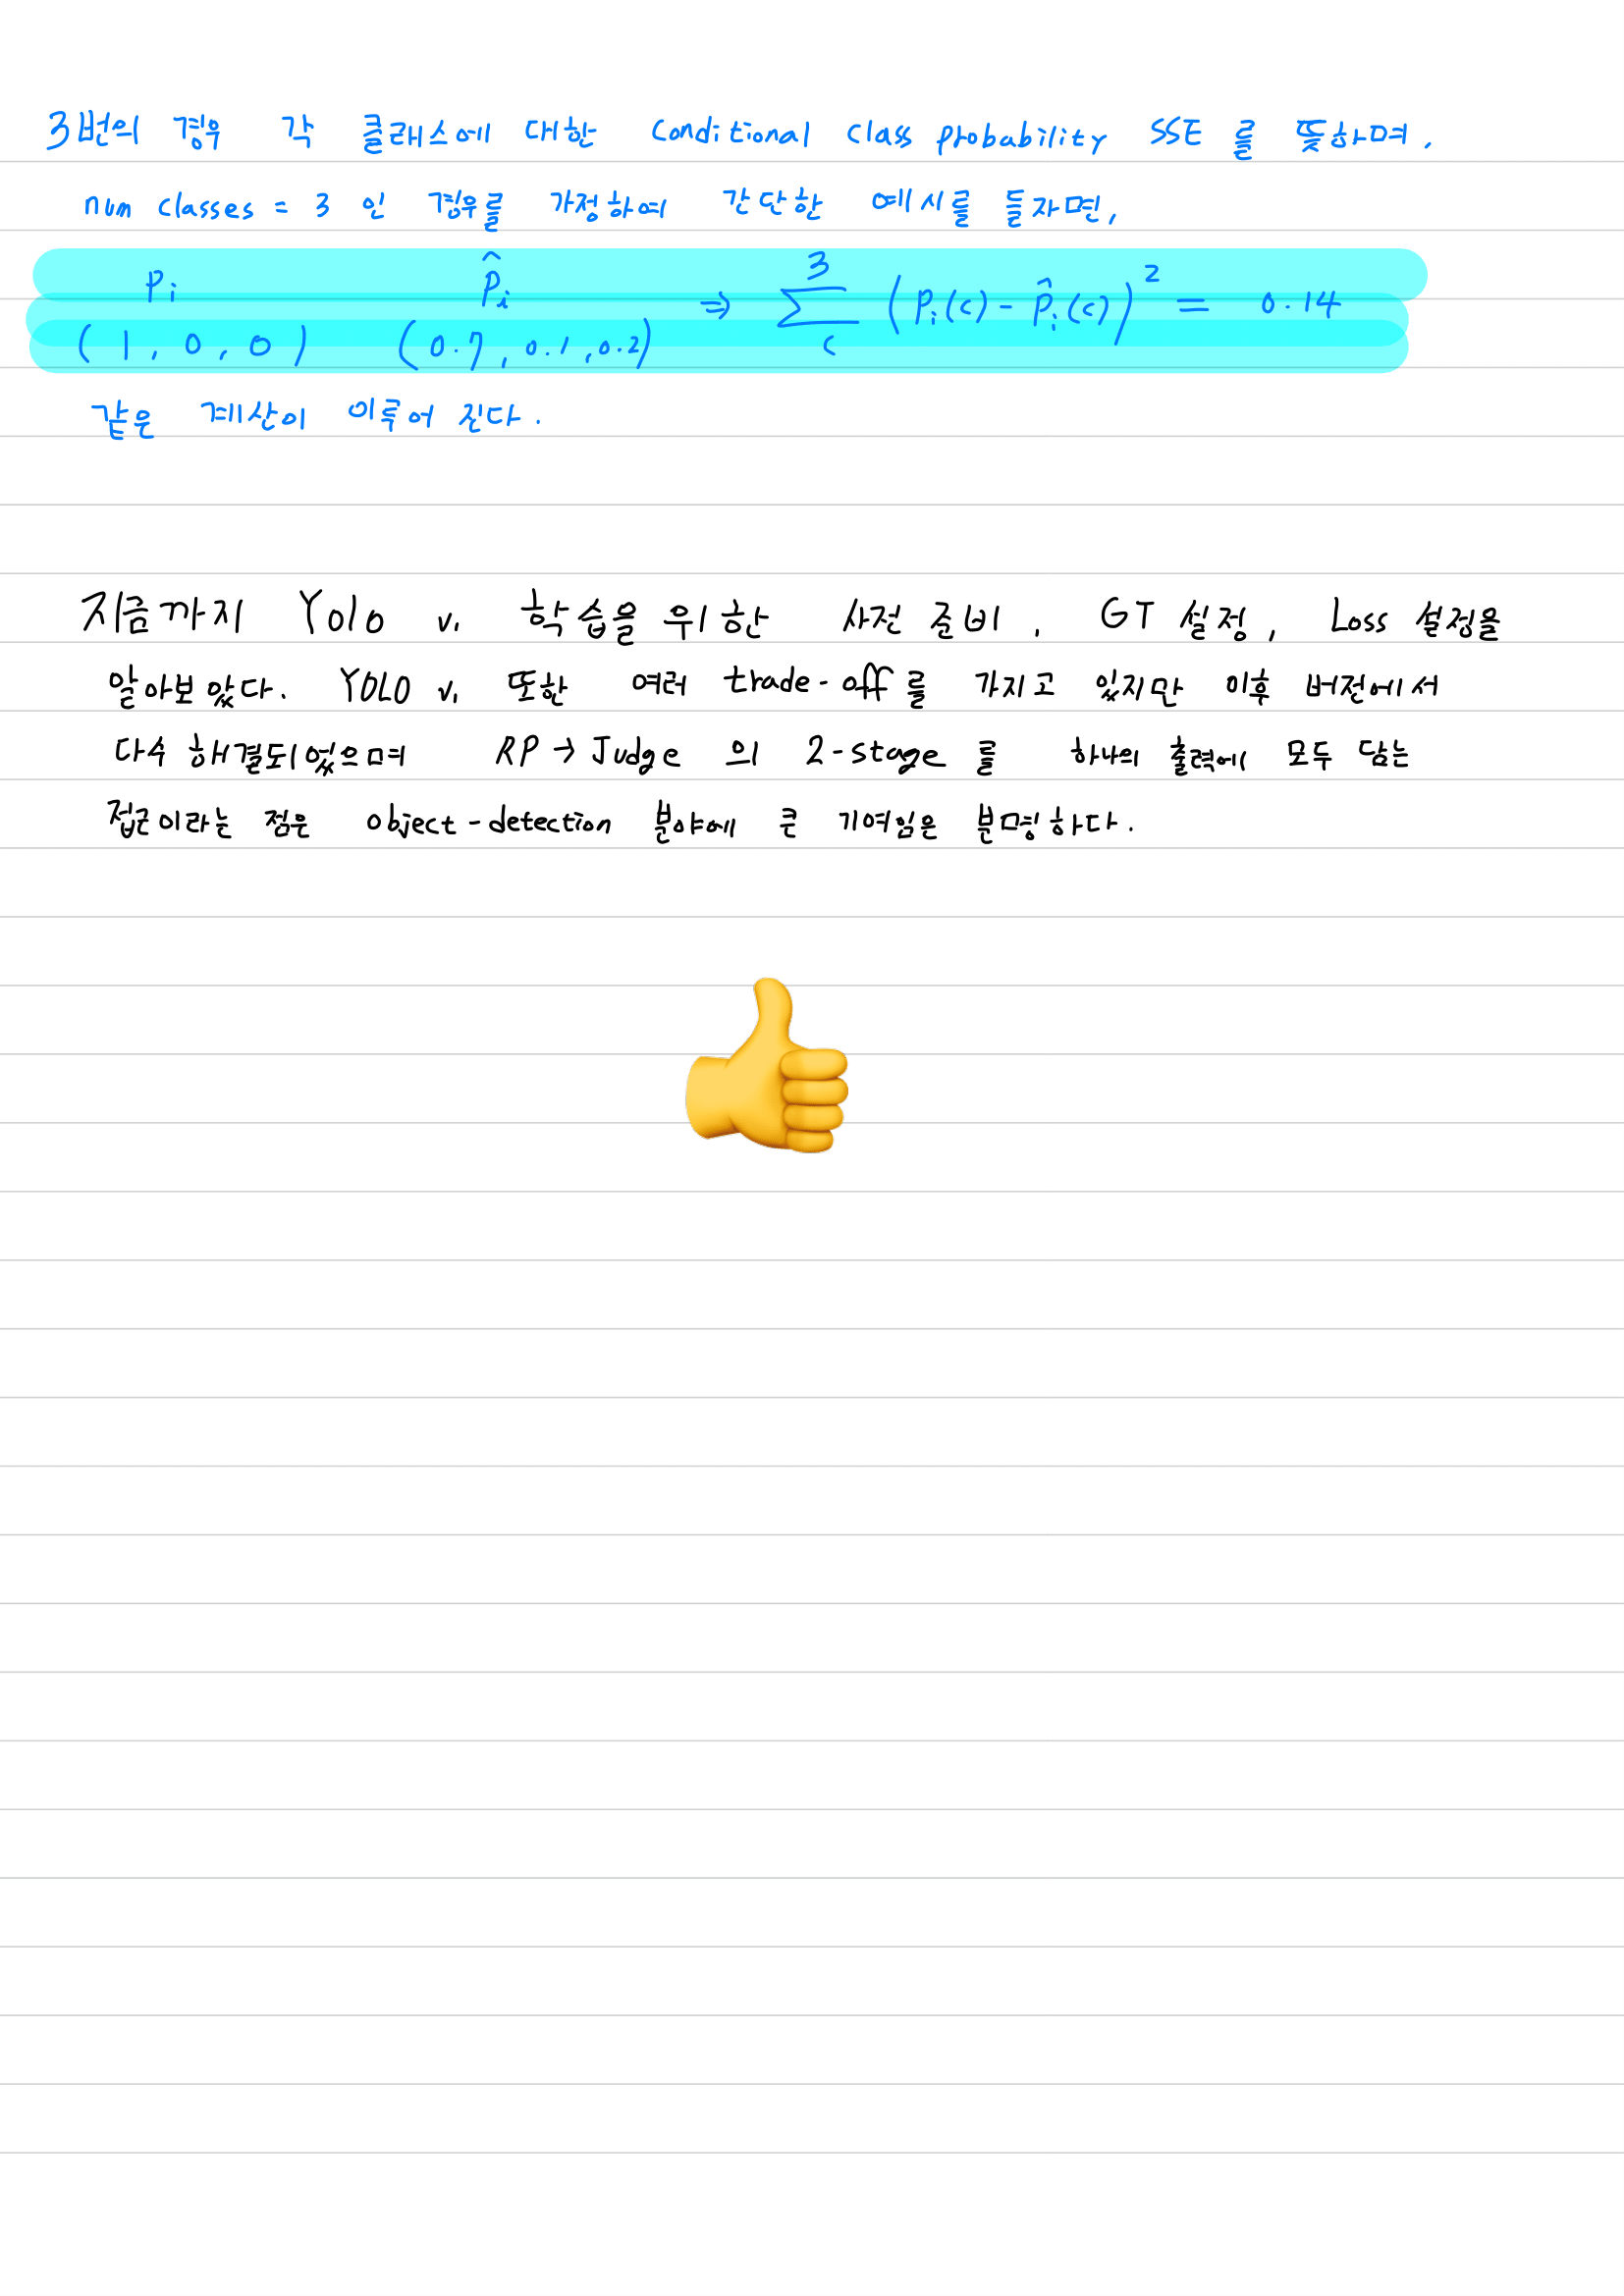 3번의 경우 각 클래스에 대한 Conditional class probability SSE 를 뜻하며,
num classes = 3 인 경우를 가정하여 간단한 예시를 들자면,
Pi P̂i ⇒ 3∑c (Pi(c) - P̂i(c))² = 0.14
(1, 0, 0) (0.7, 0.1, 0.2)
같은 계산이 이루어 진다.
지금까지 Yolo v1 학습을 위한 사전 준비, GT 설정, Loss 설정을
알아보았다. YOLO v1 또한 여러 trade-off를 가지고 있지만 이후 버전에서
다수 해결되었으며 RP → Judge 의 2-stage 를 하나의 출력에 모두 담는
접근이라는 점은 object-detection 분야에 큰 기여임은 분명하다.